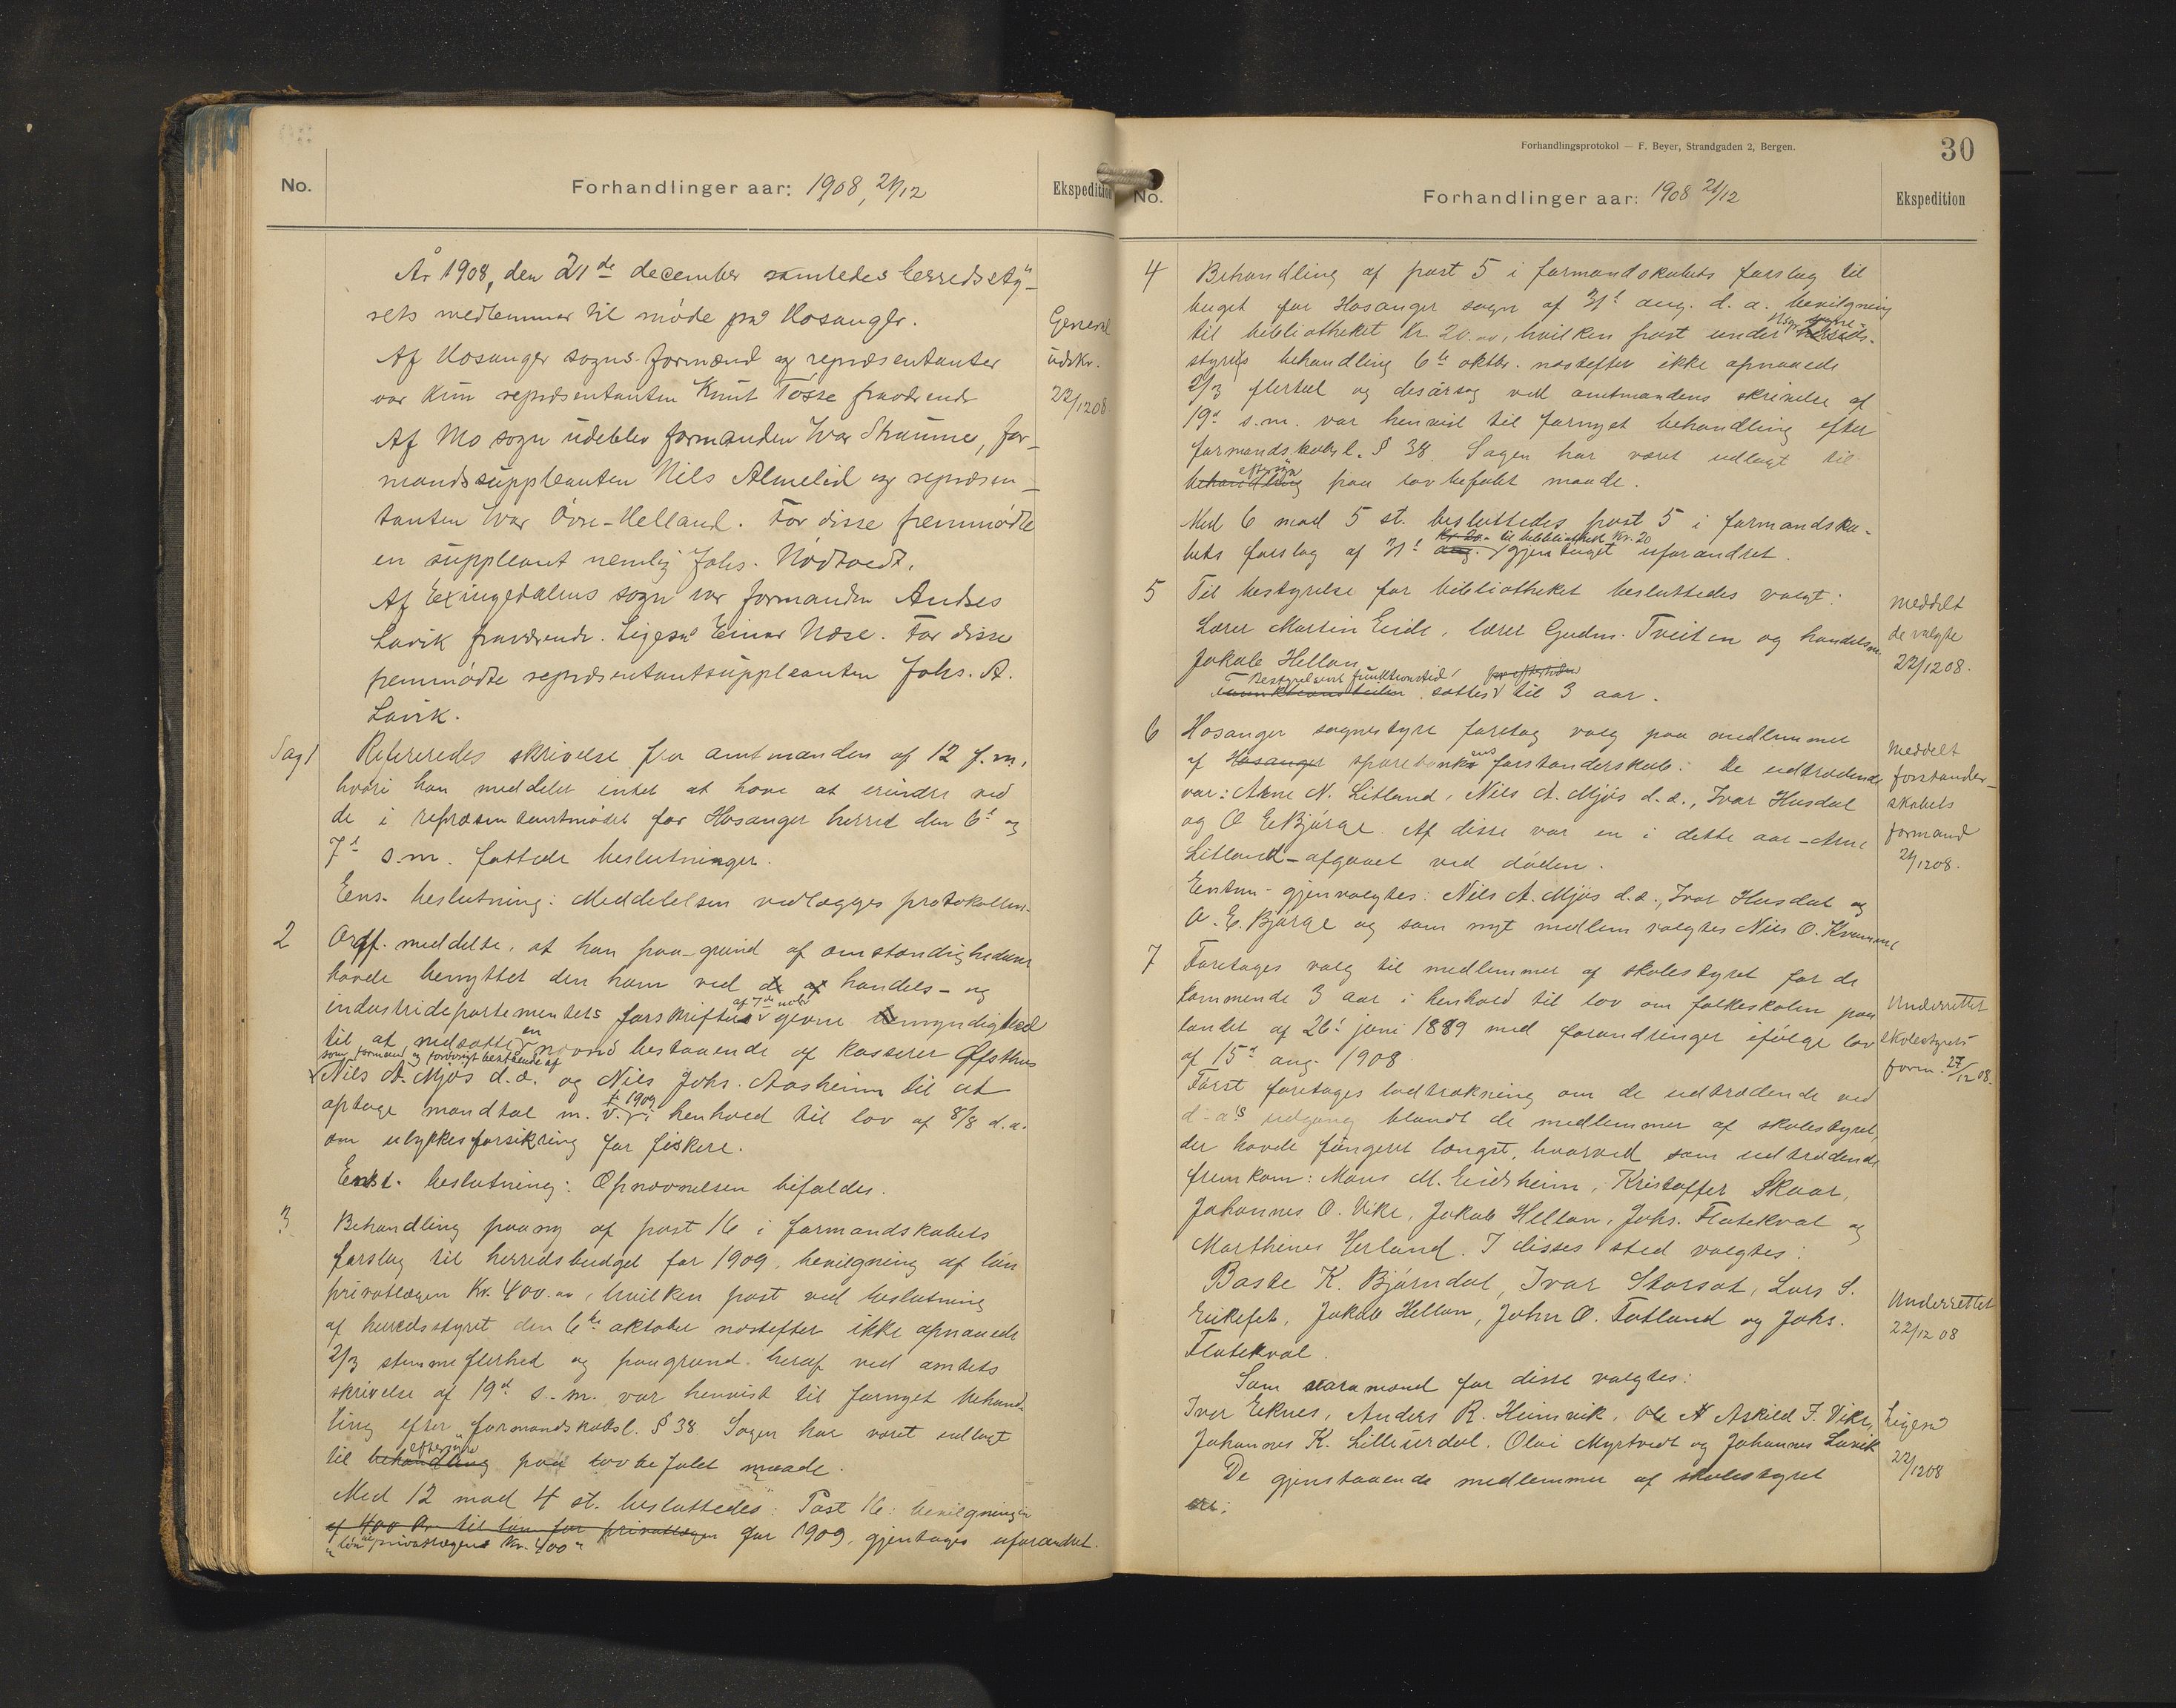 No.
Forhandlinger aar: 1908, 21/12
Ekspedition
År 1908, den 21de december samledes herredssty-
rets medlemmer til møde paa Hosanger.
Af Hosanger sogns formænd og repræsentanter
var kun repræsentanten Knut Tosse fraværende
Af Mo sogn udeblev formanden Ivar Straume, for-
mandssuppleanten Nils Almelid og repræsen-
tanten Ivar Øvre-Helland. For disse fremmødte
en suppleant nemlig Johs. Nødtvedt.
Af Exingedalens sogn var formanden Andres
Lavik fraværende. Ligesaa Einar Næse. For disse
fremmødte repræsentantsuppleanten Johs. A.
Lavik.
General
udskr.
22/12 08
Sag 1
Refereredes skrivelse fra amtmanden af 12 f.m.
hvori han meddeler intet at have at erindre ved
de i repræsentantmødet for Hosanger herred den 6te og
7de s.m. fattede beslutninger.
Eens. beslutning: Meddelelsen vedlægges protokollen.
2
Ordf. meddelte, at han paa grund af omstændighederne
havde benyttet den ham ved de af handels- og
industridepartementets forskrifter af 7de novbr givne bemyndighed
til at nedsætte en nævnd bestaaende af kasserer Øfsthus
som formand og forøvrigt bestaaende af
Nils A. Mjøs d.æ. og Nils Johs. Aasheim til at
optage mandtal m. v. f. 1909 i henhold til lov af 8/8 d.a.
om ulykkesforsikring for fiskere.
Enst. beslutning: Opnævnelsen bifaldes.
3
Behandling paany af post 16 i formandskabets
forslag til herredsbudget for 1909, bevilgning af løn
privatlægen Kr. 400.00, hvilken post ved beslutning
af herredsstyret den 6te oktober næstefter ikke opnaaede
2/3 stemmeflerhed og paagrund heraf ved amtets
skrivelse af 19de s.m. var henvist til fornyet behand-
ling efter formandskabsl. § 38. Sagen har været udlagt
til behandling eftersyn paa lovbefalet maade.
Med 12 mod 4 st. besluttedes: Post 16: bevilgningen
af 400 kr. til løn for privatlægen for 1909, gjentages uforandret.
"løn privatlægen Kr. 400"
Forhandlingsprotokol — F. Beyer, Strandgaden 2, Bergen.
30
No.
Forhandlinger aar: 1908 21/12
Ekspedition
4
Behandling af post 5 i formandskabets forslag til
buget for Hosanger sogn af 31te aug. d.a. bevilgning
til bibliotheket Kr. 20.00, hvilken post under herreds-
styrets behandling 6te oktbr. næstefter ikke opnaaede
2/3 flertal og desårsag ved amtmandens skrivelse af
19de s.m. var henvist til fornyet behandling efter
formandskabsl. § 38. Sagen har været udlagt til
behandling eftersyn paa lovbefalet maade.
Med 6 mod 5 st. besluttedes post 5 i formandska-
bets forslag af 31te aug. til bibliothek Kr. 20 gjentaget uforandret.
5
Til bestyrelse for bibliotheket besluttedes valgt:
Lærer Martin Eide, lærer Gudm. Tveiten og handelsm.
Jakob Hellan
Bestyrelsens funktionstid sattes til 3 aar.
Meddelt
de valgte
22/12 08.
6
Hosanger sognestyre foretog valg paa medlemmer
af Hosanger sparebankens forstanderskab: De udtrædende
var: Arne N. Litland, Nils A. Mjøs d.æ., Ivar Husdal
og O. E. Bjørge. Af disse var en i dette aar - Arne
Litland - afgaaet ved døden.
Enstm. gjenvalgtes: Nils A. Mjøs d.æ., Ivar Husdal og
O. E. Bjørge og som nyt medlem valgtes Nils O. Kvamme
Meddelt
forstander-
skabets
formand
21/12 08.
7
Foretages valg til medlemmer af skolestyret for de
kommende 3 aar i henhold til lov om folkeskolen paa
landet af 26de juni 1889 med forandringer ifølge lov
af 15de aug. 1908.
Først foretages lodtrækning om de udtrædende ved
d.a's udgang blandt de medlemmer af skolestyret,
der havde fungeret længst, hvorved som udtrædende
fremkom: Mons M. Eidsheim, Kristoffer Skaar,
Johannes O. Vike, Jakob Hellan, Johs. Flatekval og
Marthinus Herland. I disses sted valgtes:
Baste K. Bjørndal, Ivar Storset, Lars S.
Eikefet, Jakob Hellan, John O. Fotland og Johs.
Flatekval.
Som varamænd for disse valgtes:
Iver Eknes, Anders R. Heimvik, Ole A Askild J. Vike,
Johannes K. Lilleurdal, Olai Myrtvedt og Johannes Lavik
De gjenstaaende medlemmer af skolestyret
er:
Underrettet
skolestyrets
form. 22/12 08.
Underrettet
22/12 08
Ligesaa
22/12 08